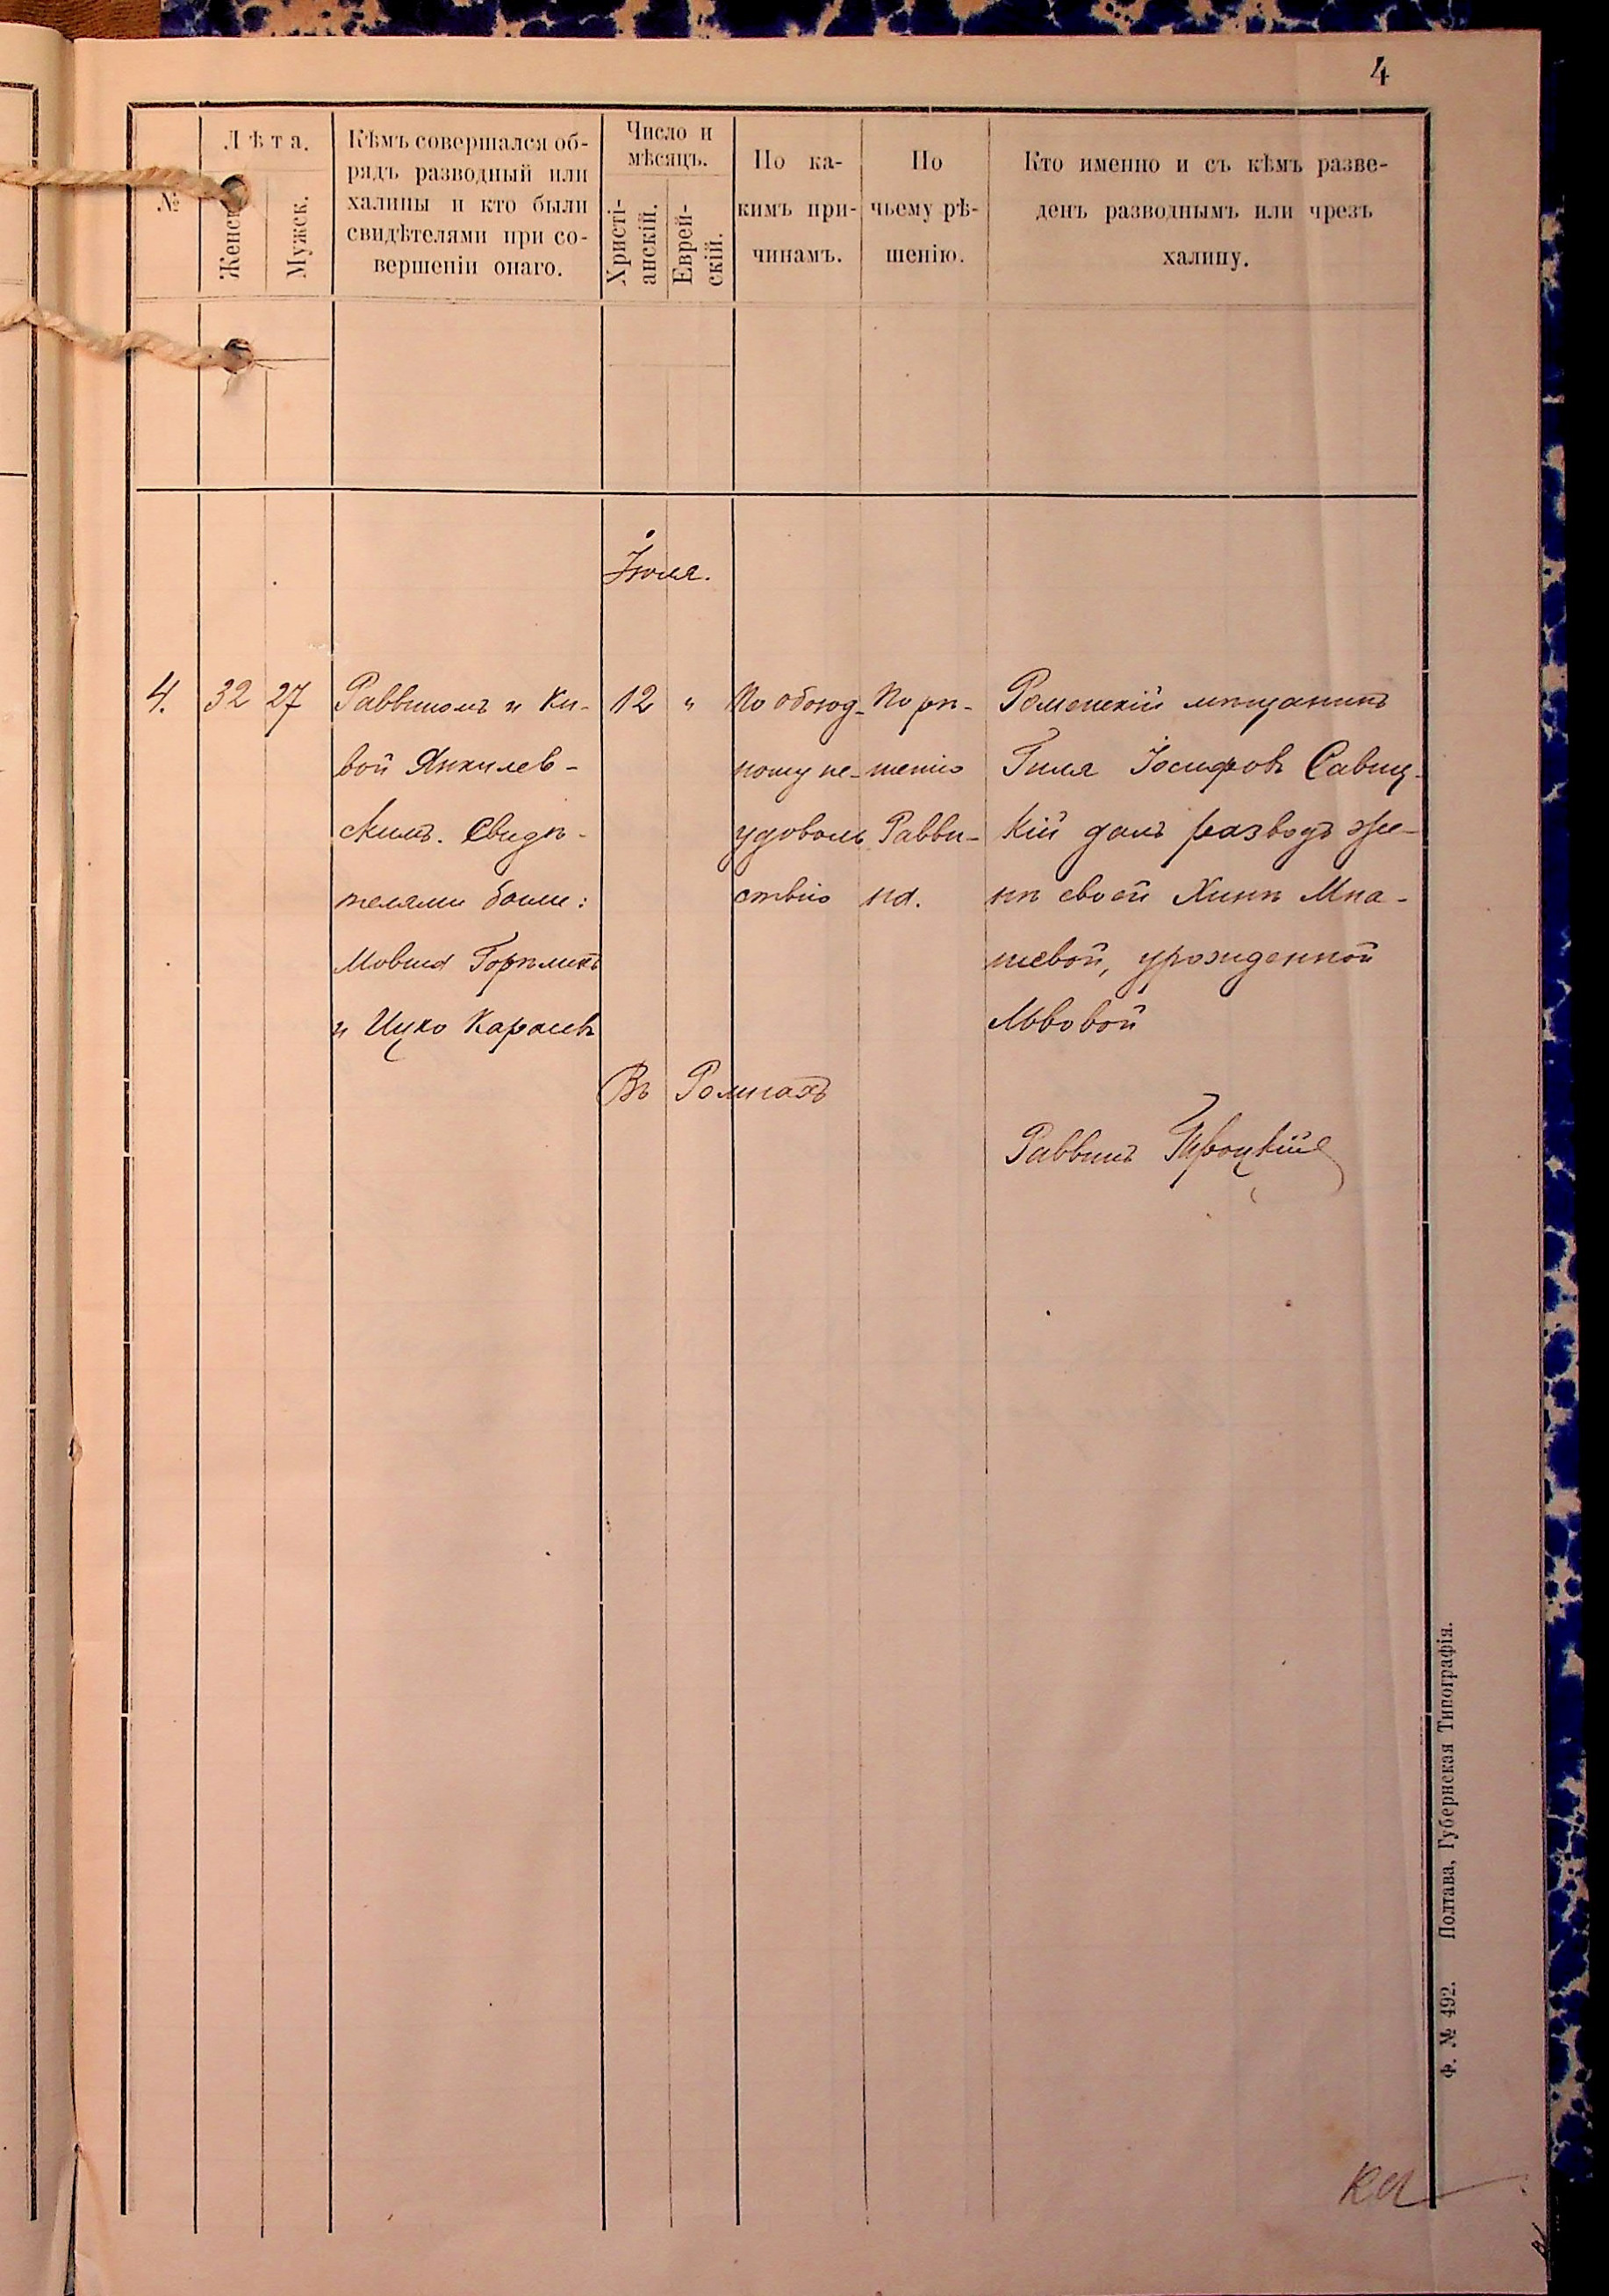 4
№
Лѣта.
Женск
Мужск.
Кѣмъ совершался об-
рядъ разводный или
халицы и кто были
свидѣтелями при со-
вершеніи онаго.
Число и
мѣсяцъ.
Христі-
анскій.
Еврей-
скій.
По ка-
кимъ при-
чинамъ.
По
чьему рѣ-
шенію.
Кто именно и съ кѣмъ разве-
денъ разводнымъ или чрезъ
халицу.
Іюля.
4.
32
27
Раввиномъ и Ки-
вой Янкилев-
скимъ. Свидѣ-
телями были:
Мовша Горѣликъ
и Ицко Карасикъ
12
"
По обоюд-
ному не-
удоволь
ствію
По рѣ-
шенію
Равви-
на.
Роменскій мѣщанинъ
Гиля Іосифовъ Савиц-
кій далъ разводъ же-
нѣ своей Хинѣ Мна-
шевой, урожденной
Львовой
Въ Ромнахъ
Раввинъ
Полтава, Губернская Типографія.
Ф. № 492.